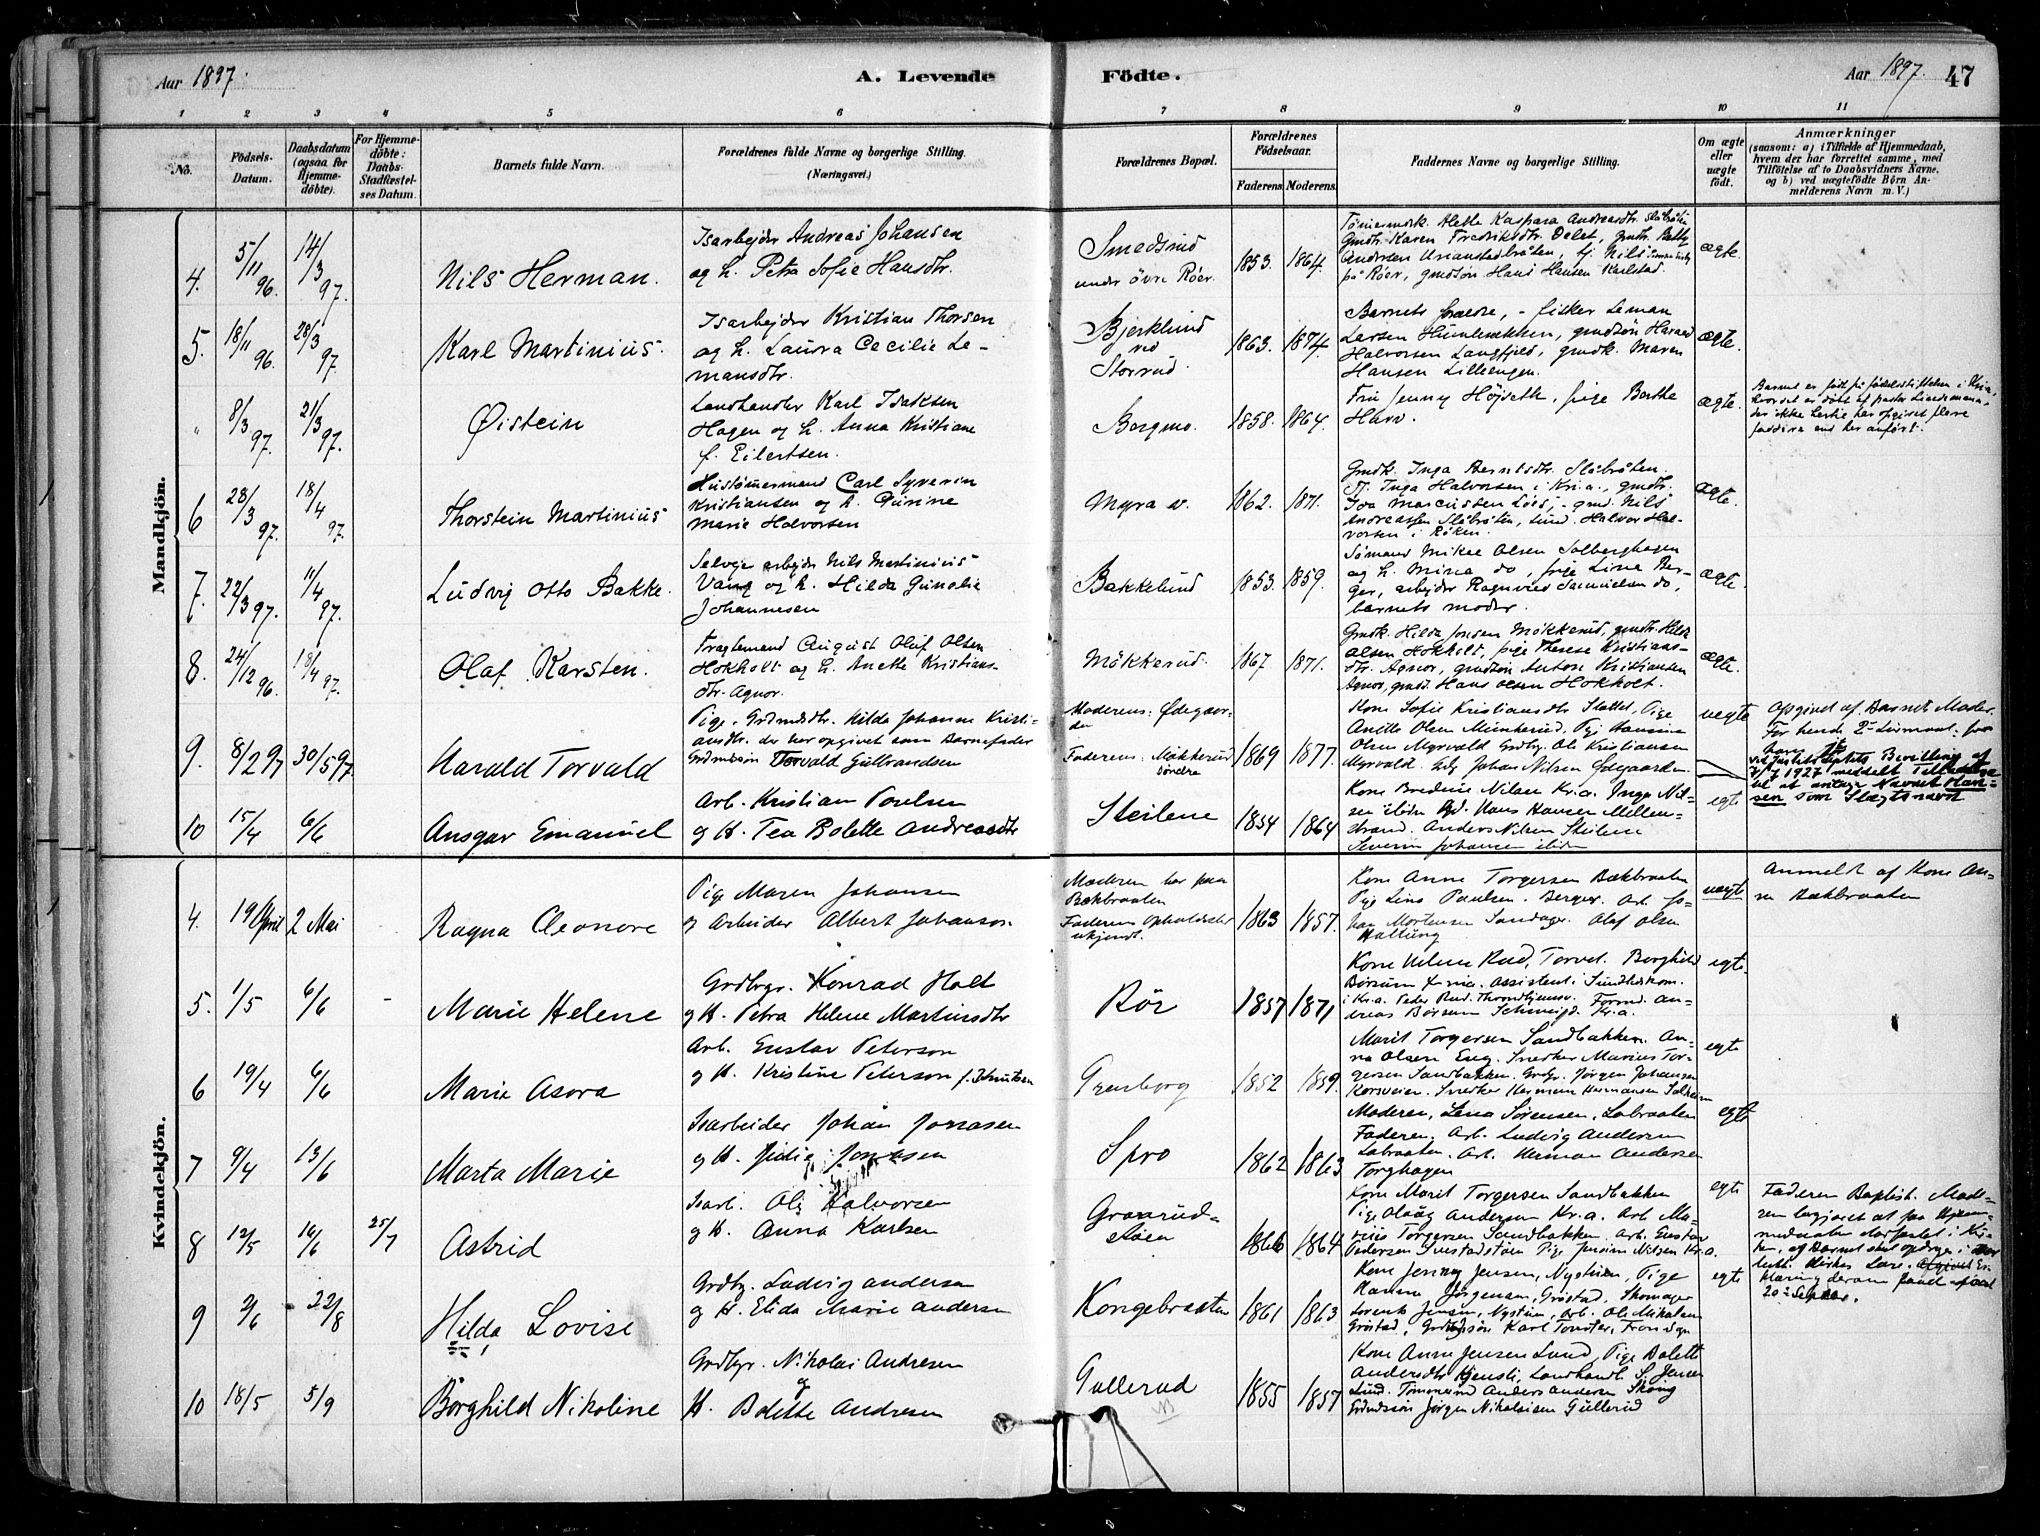 Aar 1897.
A. Levende
Födte.
Aar 1897.
47
1 2 3 4 5 6 7 8 9 10 11
No.
Födsels-Datum.
Daabsdatum (ogsaa for Hjemme-döbte).
For Hjemme-döbte: Daabs-Stadfæstel-ses Datum.
Barnets fulde Navn.
Forældrenes fulde Navne og borgerlige Stilling.
(Næringsvei.)
Forældrenes Bopæl.
Forældrenes Födselsaar.
Faderens. Moderens.
Faddernes Navne og borgerlige Stilling.
Om ægte eller uægte födt.
Anmærkninger
(saasom: a) i Tilfælde af Hjemmedaab,
hvem der har forrettet samme, med
Tilföielse af to Daabsvidners Navne.
og b) ved uægtefödte Børn An-
melderens Navn m. V.)
Mandkjön.
4. 5/11 96. 14/3 97. Nils Herman.
Isarbejder Andreas Johansen
og h. Petra Sofie Hansdtr.
Smedsrud
under övre Röer.
1853. 1864.
Gmdtr. Karen Fredriksdtr.
på Röer, gmdsön Hans Hansen Karlstad.
ægte.
5. 18/11 96. 28/3 97. Karl Martinius.
Isarbejder Kristian Thorsen
og h. Laura Cecilie Le-
mansdtr.
Bjerklund
ved
Storrud.
1863. 1874.
Barnets forældre, fisker Leman
Larsen Humlebækken, gmdsön Harald
Halvorsen Langfjeld, gmdk. Maren
Hansen Lilleengen.
ægte.
" 8/3 97. 21/3 97. Øistein
Landhandler Karl Isaksen
Hagen og h. Anna Kristiane
f. Eilertsen.
Bergmo.
1858. 1864.
Frk Jenny Höjseth, pige Berthe
Haro.
ægte.
Barnet er født på fødselsstiftelsen i Kria,
hvor det er döbt af pastor Lindemann,
der ikke har opgivet flere
faddere end her anfört.
6 28/3 97. 18/4 97. Thorstein Martinius
Hustömmermand Carl Syverin
Kristiansen og h. Gunine
Marie Halvorsen
Myra
1862. 1871.
Gmdk. Inga Berntsdtr. Slåbråten.
Inga Halvorsen i Kr.a., gmdtr.
Andreassen Slåbråten, Halvor Hal-
vorsen i Röken.
ægte.
7. 22/3 97. 11/4 97. Ludvig Otto Bakke.
Selvejer arbejder Nils Martinius
Vang og h. Hilda Gunelie
Johannesen
Bakkelund
1853. 1859.
Sömand Mikal Olsen Solberghagen
og h. Mina do, pige Lina Ber-
ger, arbejder Ragnvald Samuelsen do,
barnets moder.
ægte.
8. 24/12 96. 18/4 97. Olaf Karsten.
Fragtemand August Olaf Olsen
Hokholt og h. Anette Kristians-
dtr. Agnor.
Mökkerud.
1867 1871.
Gmdk. Hilda Jonsen Mökkerud, gmdtr. Hilda
Olsen Hokholt, pige Therese Kristians-
dtr. Agnor, gmdsön Anton Kristiansen
Agnor, gmd. Hans Olsen Hokholt.
ægte.
9. 8/2 97 30/5 97. Harald Torvald
Pige, Grdmdsdtr. Hilda Johanne Kristi-
ansdtr. der har opgivet som Barnefader
Grdmdssön Torvald Gulbrandsen
Moderens: Ødegaar-
den
Faderens: Mökkerud
söndre
1869 1877.
Kone Sofie Kristiansdtr Slottet, Pige
Anette Olsen Munkerud, Pige Hansine
Olsen Myrvold Grdbr. Ole Kristiansen
Myrvold. Johan Nilsen Ødegaarden.
uegte
Opgivet af Barnets Moder.
For hende 2det Leiermaal. for
ham 1ste
ved Justitsdeptets Bevilling af
7/7 1927 meddelt Tilladelse
til at antage Navnet Han-
sen som Slægtsnavn
10 15/4 6/6 Ansgar Emanuel
Arb. Kristian Poulsen
og H. Tea Bolette Andreasdtr
Steilene
1854 1864
Kone Bredine Nilsen Kr.a. Inga Nil-
sen ibidem. Hans Hansen Mellem-
strand. Anders Nilsen Steilene
Severin Johansen ibidem
egte
Kvindekjön.
4. 19 April 2 Mai Ragna Eleonore
Pige Maren Johansen
og Arbeider Albert Johanson
Moderen har paa
Bækbraaten
Faderens Opholdssted
ukjendt.
1863 1857.
Kone Anne Torgersen Bækbraaten
Pige Lina Paulsen. Berger. Arb. Jo-
han Mortensen Sandager. Olaf Olsen
Hallung
uægte
Anmeldt af Kone An-
na Bækbraaten
5. 1/5 6/6 - Marie Helene
Grdbrgr. Konrad Holt
og H. Petra Helene Martinsdtr
Rör
1857 1871
Kone Helene Rud, Borghild
Börsum Kr.ia. Assistent i Sundhedskom.
i Kr.a. Peder Rud. Throndhjemsv. Form. An-
dreas Börsum Schweigd. Kr.a.
egte.
6 19/4 6/6 Marie Asora
Arb. Gustav Peterson
og H. Kristine Peterson f. Knutsen
Grensborg
1852 1859.
Marit Torgersen Sandbakken. An-
na Olsen Eng. Snedker Marius Tor-
gersen Sandbakken. Grdbr. Jörgen Johansen
Korsveien. Snedker Herman Hermansen
egte
7 9/4 13/6 Marta Marie
Isarbeider Johan Jonasen
og H. Julie Jonasen
Spro
1862 1863
Moderen, Lena Sörensen, Labraaten
Faderen. Arb. Ludvig Andersen
Labraaten. Arb. Herman Andersen
Torghagen
egte
8 12/5 16/6 25/7 Astrid
Isarb. Ole Halvorsen
og H. Anna Karlsen
Graarud-
støen
1866 1864
Kone Marit Torgersen Sandbakken
Pige Olaug Andersen Kr.a. Arb. Ma-
rius Torgersen Sandbakken. Arb. Gustav
Pedersen Svestadstøen Pige Jensine Nilsen Kr.a.
egte
Faderen Baptist. Mode-
ren begjæret at faa Hjem-
medaaben stadfæstet i Kir-
ken, at Barnet skal opdrages i den
luth. Kirkes Lære. Er-
klæring derom
9 2/6 22/8 Hilda Lovise
Grdbr. Ludvig Andersen
og H. Elida Marie Andersen
Kongebraaten
1861 1863
Kone Jenny Jensen, Nystuen, Pige
Hanna Jörgensen, Gröstad. Skomager
Lorentz Jensen, Nystuen, Arb. Ole Mikalsen
Gröstad, Grdbrsön Karl
egte
10 18/5 5/9 Borghild Nikoline
Grdbgr. Nikolai Andresen
og
H. Bolette Andresen
Gullerud
1855 1857
Kone Anne Jensen Lund, Pige Bolette
Andersdtr Kjensli, Landhandl. S. Jensen
Lund. Tömmermd Anders Andersen Skoug
Grdmdssön Jörgen Nikolaisen Gullerud